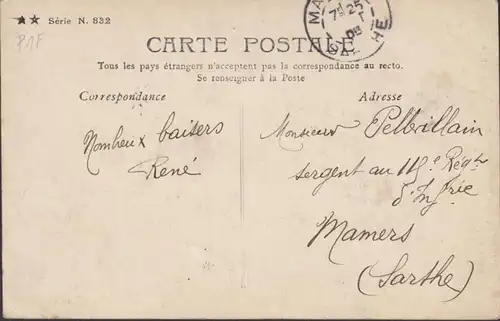 ★★ Série N. 832
P1F
MA
7h 25
SARTHE
CARTE POSTALE
Tous les pays étrangers n'acceptent pas la correspondance au recto.
Se renseigner à la Poste
Correspondance
Nombeux baisers
René
Adresse
Monsieur Pelbrillain
sergent au 115e Régt
d'Infrie
Mamers
(Sarthe)